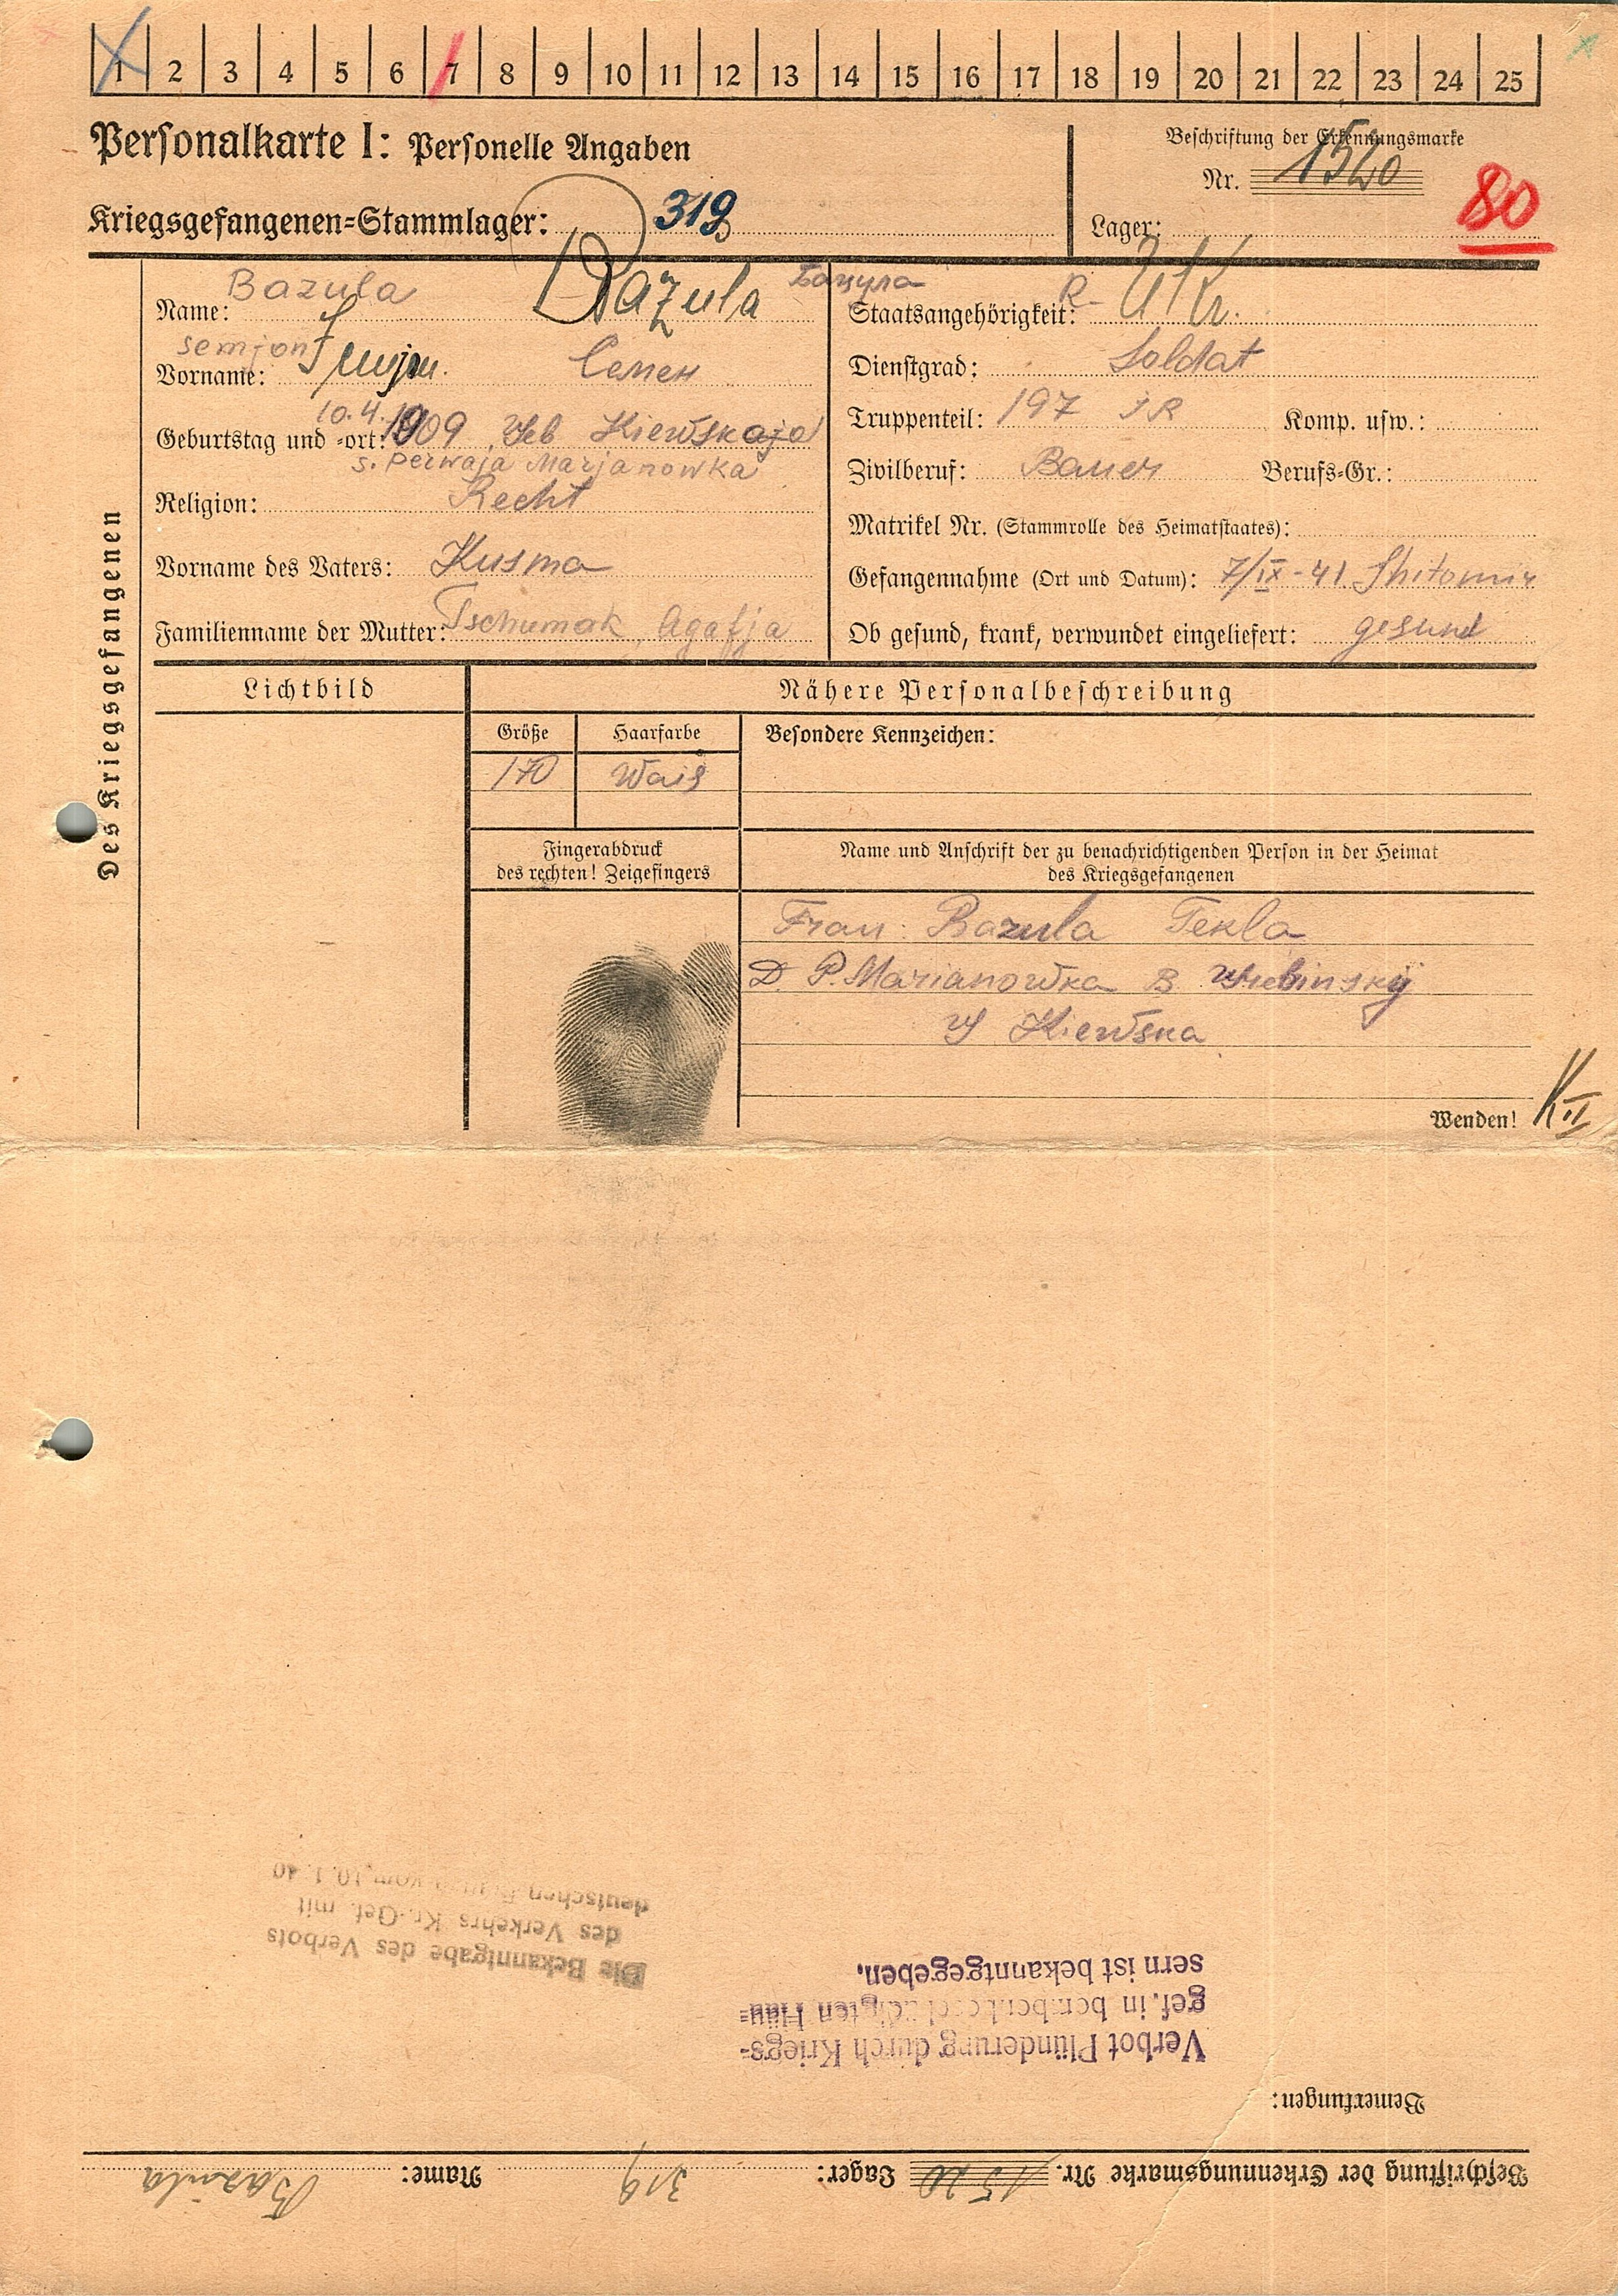 1 2 3 4 5 6 7 8 9 10 11 12 13 14 15 16 17 18 19 20 21 22 23 24 25
Personalkarte I: Personelle Angaben
Beschriftung der Erkennungsmarke
Nr. 1520
Kriegsgefangenen-Stammlager: 319
Lager:
80
Des Kriegsgefangenen
Bazula
Name: Bazula Бацула
semjon
Vorname: Semjon. Семен
10.4.
Geburtstag und -ort: 1909 Geb Kiewskaja
s. Perwaja Marjanowka
Religion: Recht
Vorname des Vaters: Kusma
Familienname der Mutter: Tschumak, Agafja
Staatsangehörigkeit: R- Ukr.
Dienstgrad: Soldat
Truppenteil: 197 IR Komp. usw.:
Zivilberuf: Bauer Berufs-Gr.:
Matrikel Nr. (Stammrolle des Heimatstaates):
Gefangennahme (Ort und Datum): 7/IX-41 Shitomir
Ob gesund, krank, verwundet eingeliefert: gesund
Lichtbild
Nähere Personalbeschreibung
Größe Haarfarbe Besondere Kennzeichen:
170 Wais
Fingerabdruck
des rechten! Zeigefingers
Name und Anschrift der zu benachrichtigenden Person in der Heimat
des Kriegsgefangenen
Frau: Bazula Tekla
D. P. Marianowka B.
Kiewska
Wenden!
K II
Beschriftung der Erkennungsmarke Nr. 1520 Lager: 319 Name: Bazula
Bemerkungen:
Verbot Plünderung durch Kriegs-
gef. in bombenbeschädigten Häu-
sern ist bekanntgegeben.
Die Bekanntgabe des Verbots
des Verkehrs Kr.-Gef. mit
deutschen vom 10.1.40